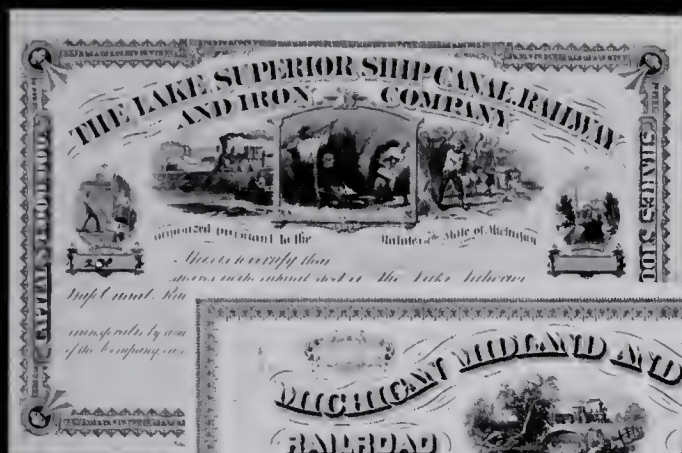 THE LAKE SUPERIOR SHIP CANAL, RAILWAY
AND IRON COMPANY
CAPITAL $4,000,000
SHARES $100
organized pursuant to the Statutes of the State of Michigan
This is to certify that
shares in the capital stock of The Lake Superior
Ship Canal, Rai
transferable by
of the Company
MICHIGAN MIDLAND AND
RAILROAD